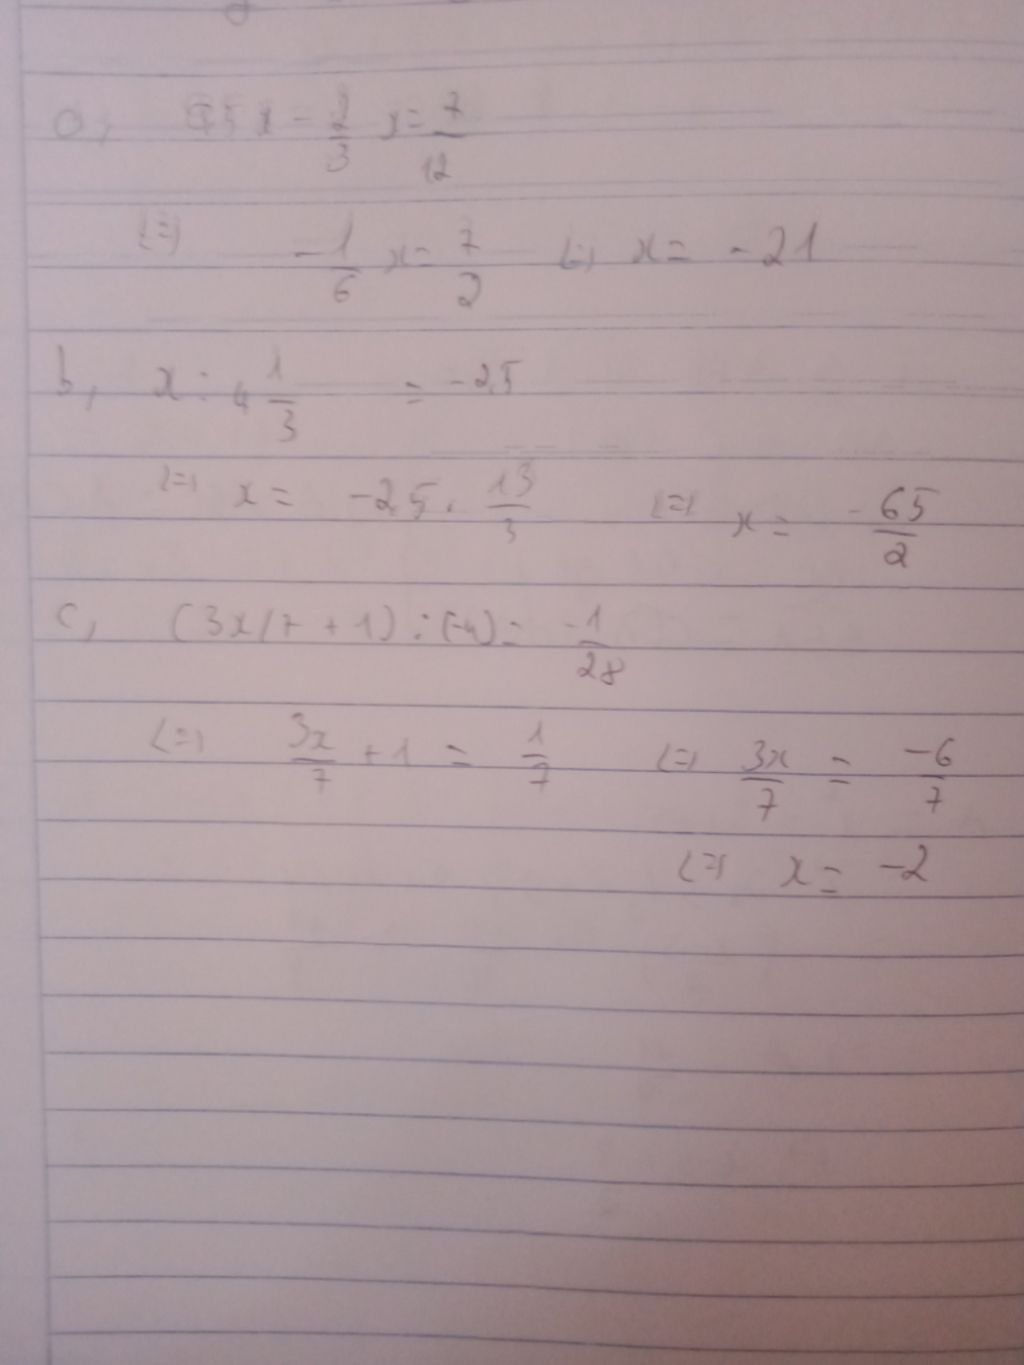 a, 0,5x - 2/3 x = 7/12
<=> -1/6 x = 7/2 <=> x = -21
b, x : 4 1/3 = -2,5
<=> x = -2,5 . 13/3 <=> x = -65/2
c, (3x/7 + 1) : (-4) = -1/28
<=> 3x/7 + 1 = 1/7 <=> 3x/7 = -6/7
<=> x = -2